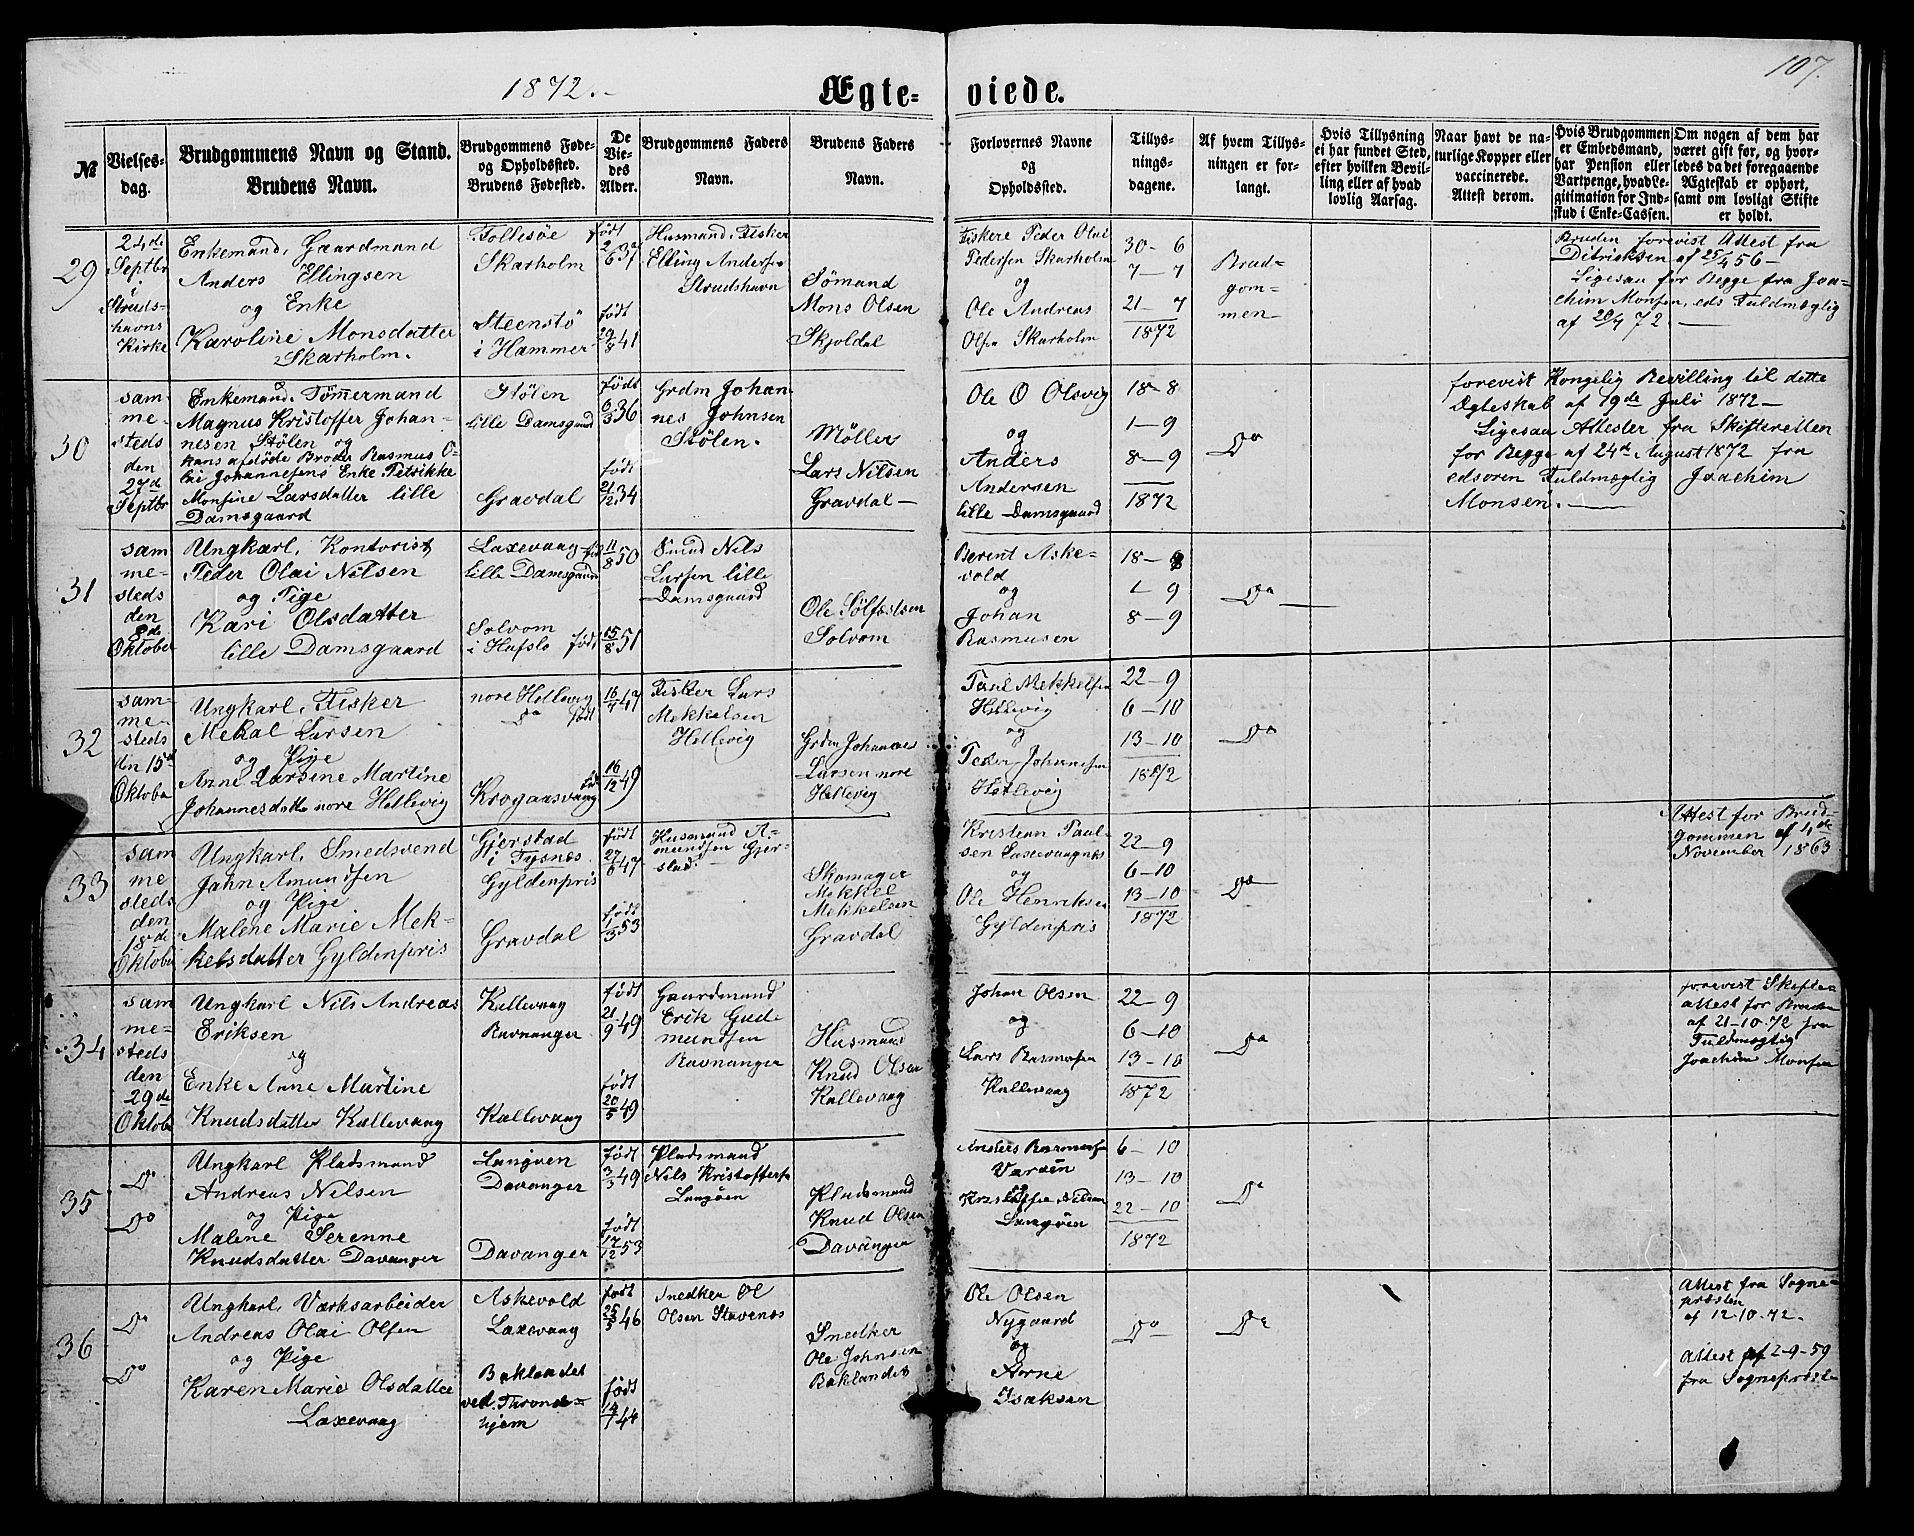 1872.
Ægte-
viede.
107.
№
Vielses-
dag.
Brudgommens Navn og Stand.
Brudens Navn.
Brudgommens Føde-
og Opholdssted.
Brudens Fødested.
De
Vie-
des
Alder.
Brudgommens Faders
Navn.
Brudens Faders
Navn.
Forlovernes Navne
og
Opholdssted.
Tillys-
nings-
dagene.
Af hvem Tillys-
ningen er for-
langt.
Hvis Tillysning
ei har fundet Sted,
efter hvilken Bevil-
ling eller af hvad
lovlig Aarsag.
Naar havt de na-
turlige Kopper eller
vaccinerede.
Attest derom.
Hvis Brudgommen
er Embedsmand,
har Pension eller
Vartpenge, hvad Le-
gitimation for Ind-
skud i Enke-Cassen.
Om nogen af dem har
været gift før, og hvor-
ledes da det foregaaende
Ægteskab er ophørt,
samt om lovligt Skifte
er holdt.
29
24de
Septbr
i
Struds-
havns
Kirke
Enkemand, Gaardmand
Anders Ellingsen
og Enke
Karoline Monsdatter
Skarholm.
Follesøe
Skarholm
Steenstø
i Hammer
født
2/6 31
født
29/8 41
Husmand, Fisker
Elling Andersen
Strudshavn
Sømand
Mons Olsen
Skjoldal
Fiskere Peder Olai
Pedersen Skarholm
og
Ole Andreas
Olsen Skarholm
30-6
7-7
21-7
1872
Brud-
gom-
men
Bruden forevist Attest fra
Ditriksen af 25/4 56 —
Ligesaa for Begge fra Joa-
chim Monsen, eds Fuldmægtig
af 20/9 72. —
30
sam
me-
steds
den
27de
Septbr
Enkemand, Tømmermand
Magnus Kristoffer Johan-
nesen Stølen og
hans afdøde Broder Rasmus O-
lai Johannesens Enke Petrikke
Monsine Larsdatter lille
Damsgaard
Stølen
lille Damsgaard
Gravdal
født
6/3 36
født
21/12 34
Grdm Johan-
nes Johnsen
Stølen.
Møller
Lars Nilsen
Gravdal —
Ole O Olsvig
og
Anders
Andersen
lille Damsgaard
18-8
1-9
8-9
1872
Do
forevist Kongelig Bevilling til dette
Ægteskab af 19de Juli 1872 —
Ligesaa Attester fra Skifteretten
for Begge af 24de August 1872 fra
edsvoren Fuldmægtig Joachim
Monsen. —
31
sam
me-
steds
den
8de
Oktober
Ungkarl, Kontorist
Peder Olai Nilsen
og Pige
Kari Olsdatter
lille Damsgaard
Laxevaag
lille Damsgaard
Solvom
i Hafslo
født
11/8 50
født
15/8 51
Smed Nils
Larsen lille
Damsgaard
Ole Sølfestsen
Solvom
Berent Aske-
vold
og
Johan
Rasmusen
18-8
1-9
8-9
Do
32
sam-
me-
steds
den 15de
Oktober
Ungkarl, Fisker
Mekal Larsen
og Pige
Anne Larsine Martine
Johannesdatter nore Hetlevig
nore Hetlevig
Do
Krogaasvaag
født
16/7 47
født
16/12 49
Fisker Lars
Mekkelsen
Hetlevig
Grdm Johannes
Larsen nore
Hetlevig
Paul Mekkelsen
Hetlevig
og
Peder Johannesen
Hetlevig
22-9
6-10
13-10
1872
Do
33
sam
me
steds
den
18de
Oktober
Ungkarl, Smedsvend
Jahn Amundsen
og Pige
Malene Marie Mek-
kelsdatter Gyldenpris
Gjerstad
i Tysnes
Gyldenpris
Gravdal
født
27/6 47
født
1/3 53
Husmand A-
mundsen Gjer-
stad.
Skomager
Mekkel
Mekkelsen
Gravdal
Kristenn Paul-
sen Laxevaagnes
og
Ole Henriksen
Gyldenpris
22-9
6-10
13-10
1872
Do
Attest for Brud-
gommen af 4de
November 1863
34
sam
me-
steds
den
29de
Oktober
Ungkarl Nils Andreas
Eriksen
og
Enke Anne Martine
Knudsdatter Kallevaag
Kallevaag
Ravnanger
Kallevaag
født
21/9 49
født
20/5 49
Gaardmand
Erik Gud-
mundsen
Ravnanger
Husmand
Knud Olsen
Kallevaag
Johan Olsen
og
Lars Rasmusen
Kallevaag
22-9
6-10
13-10
1872
Do
forevist Skifte-
attest for Bruden
af 21-10-72 fra
Fuldmægtig
Joachim Monsen
35
Do
Do
Ungkarl Pladsmand
Andreas Nilsen
og Pige
Malene Serenne
Knudsdatter Davanger
Langøen
Davanger
Davanger
født
3/3 49
født
17/12 53
Pladsmand
Nils Kristoffersen
Langøen
Pladsmand
Knud Olsen
Davanger
Anders Rasmusen
Varøen
og
Kristoffer Nilsen
Langøen
6-10
13-10
22-10
1872
Do
36
Do
Do
Ungkarl, Værksarbeider
Andreas Olai Olsen
og Pige
Karen Marie Olsdatter
Laxevaag
Askevold
Laxevaag
Baklandet
ved Thrond-
hjem
født
25/5 46
født
14/1 44
Snedker Ol
Olsen Stavenes
Smedker
Ole Johnsen
Baklandet
Ole Olsen
Nygaard
og
Arne
Isaksen
Do
Do
Attest fra Sogne-
præsten
af 12-10-72.
Attest af 2-9-59
fra Sognepræst